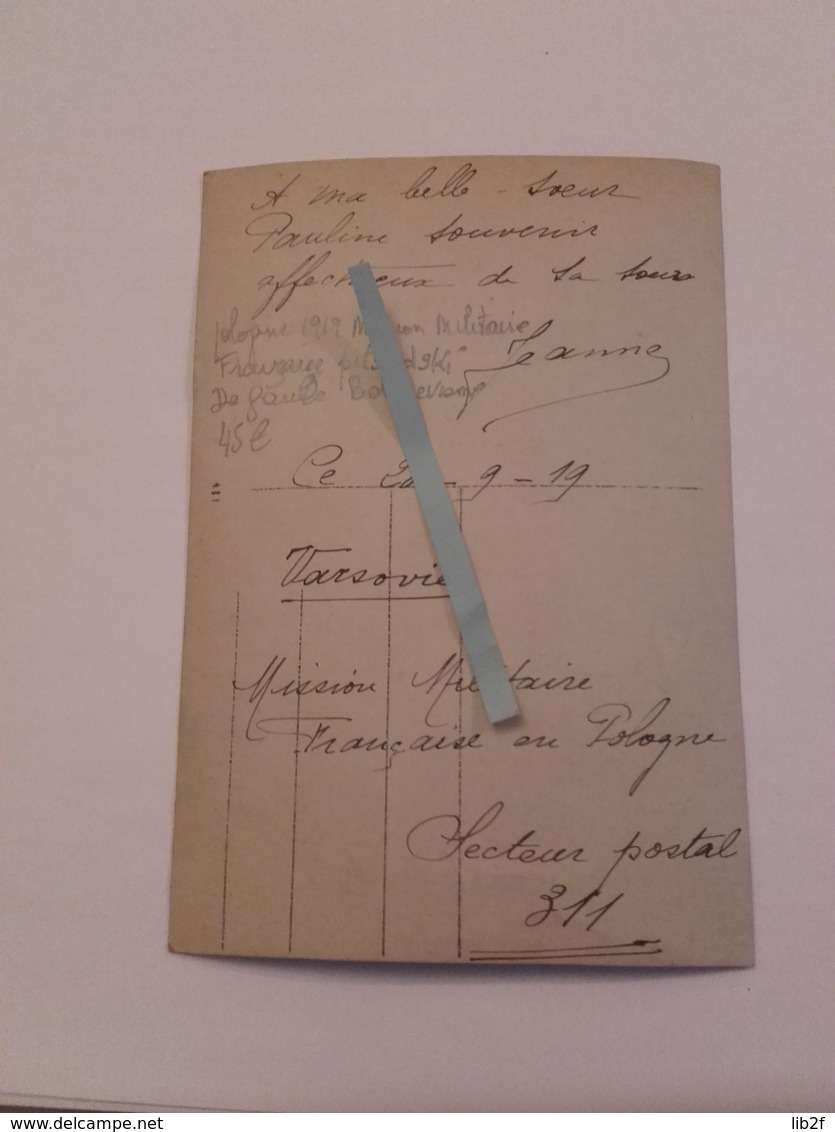 A ma belle-soeur
Pauline souvenir
affectueux de sa soeur
Jeanne
pologne 1919 Mission Militaire
Française pilsudski
De Gaulle
45€
Ce 20-9-19
Varsovie
Mission Militaire
Française en Pologne
Secteur postal
311
www.delcampe.net
lib2f